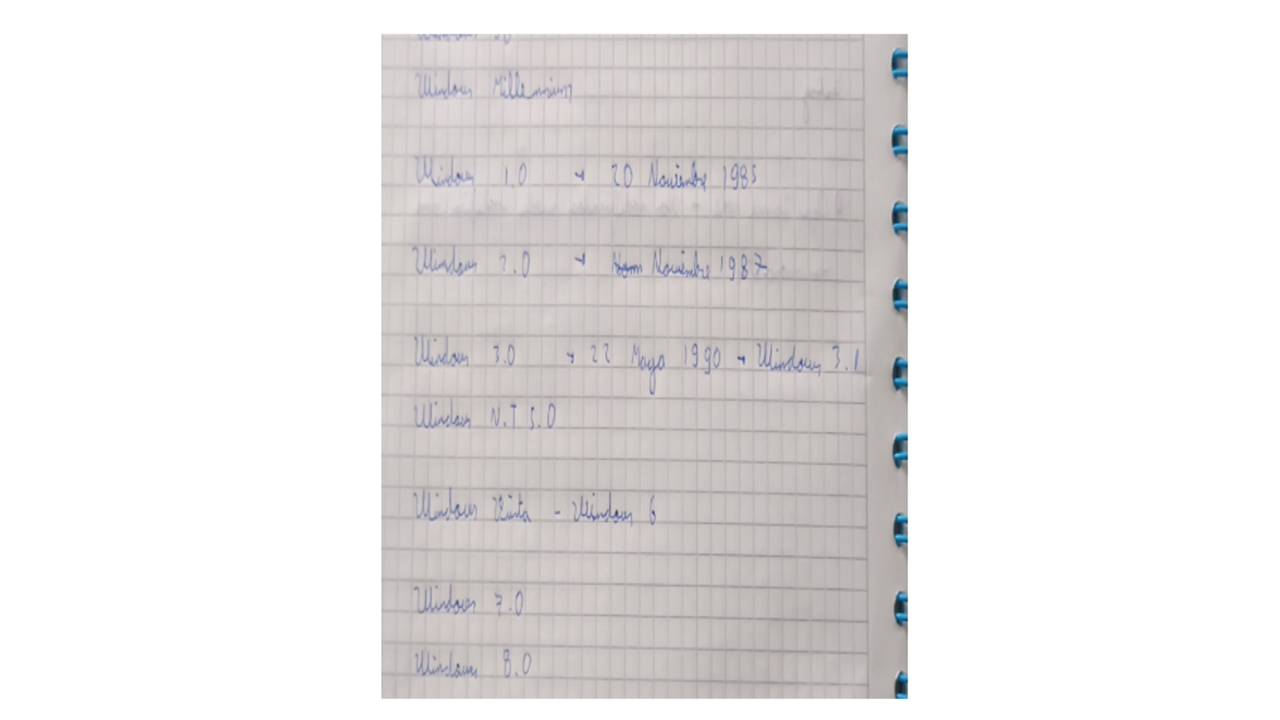 Windows Millennium
Windows 1.0 → 20 Noviembre 1985
Windows 2.0 → Noviembre 1987
Windows 3.0 → 22 Mayo 1990 → Windows 3.1
Windows N.T 5.0
Windows Vista - Windows 6
Windows 7.0
Windows 8.0